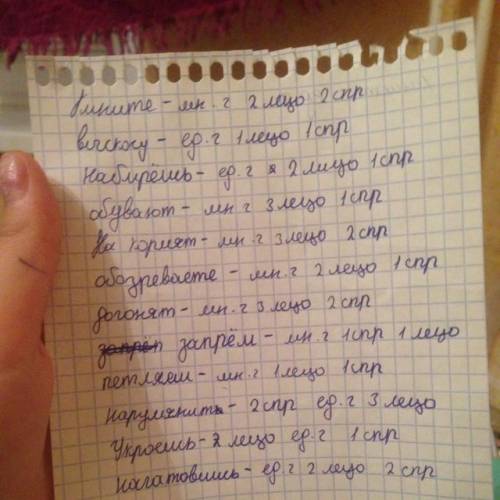 мните - мн. ч 2 лецо 2 спр
выскочу - ед. ч 1 лецо 1 спр
набирёшь - ед. ч 2 лицо 1 спр
обувают - мн. ч 3 лецо 1 спр
На кормят - мн. ч 3 лецо 2 спр
обозреваете - мн. ч 2 лецо 1 спр
догонят - мн. ч 3 лецо 2 спр
запрём - мн. ч 1 спр 1 лецо
петляем - мн. ч 1 лецо 1 спр
нарумянить - 2 спр ед. ч 3 лецо
Укроешь - 2 лецо ед. ч 1 спр
нагатовишь - ед. ч 2 лецо 2 спр